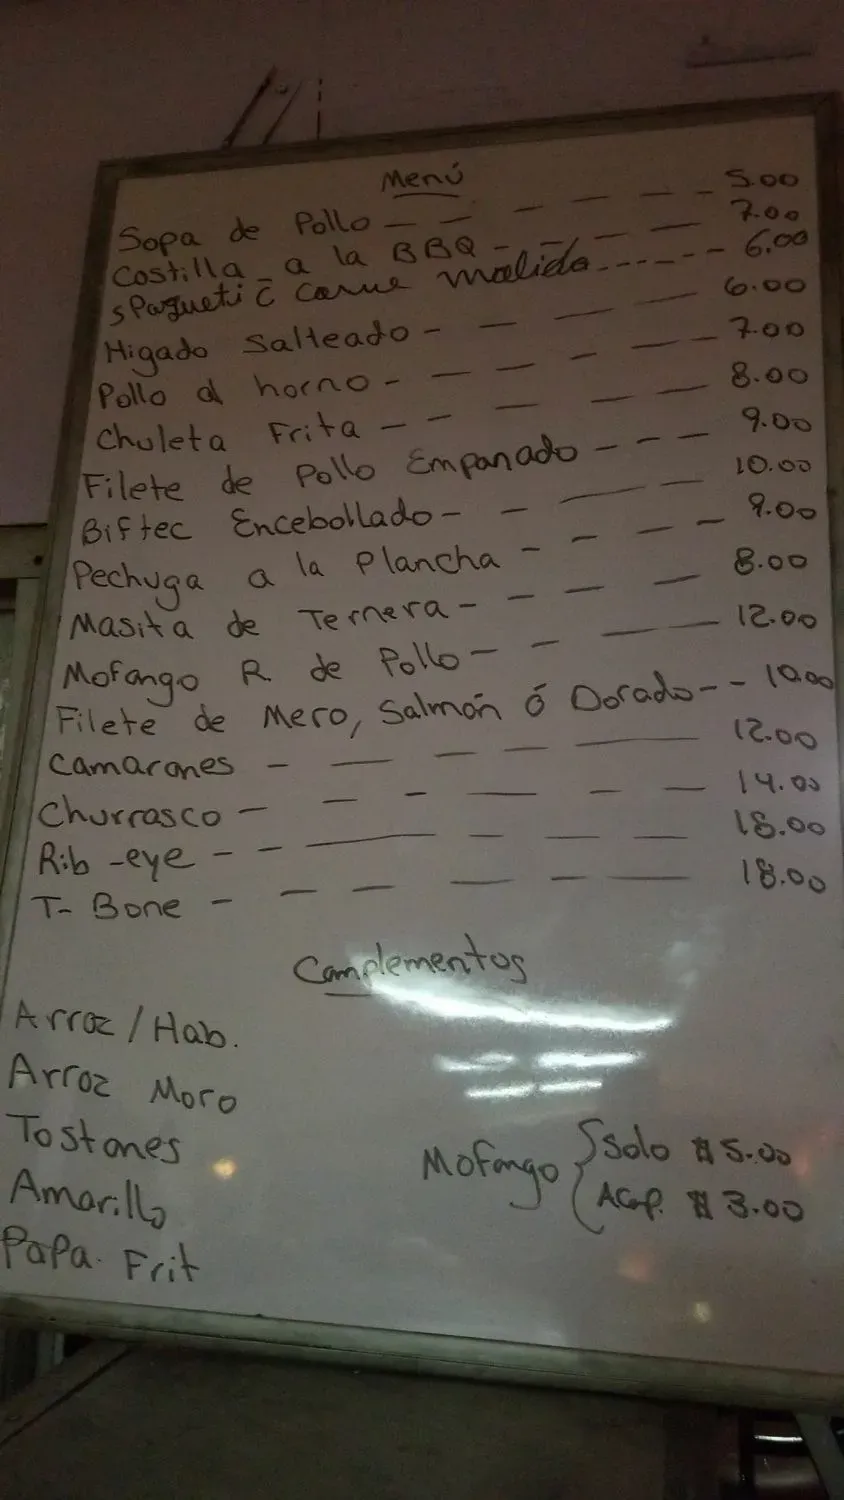 Menú
Sopa de Pollo - - - - - - 5.00
Costilla a la BBQ - - - - 7.00
sPagueti c̄ carne molida ------ 6.00
Higado Salteado - - - - 6.00
Pollo al horno - - - - - - 7.00
Chuleta Frita - - - - - 8.00
Filete de Pollo Empanado - - - 9.00
Biftec Encebollado - - - - 10.00
Pechuga a la Plancha - - - - 9.00
Masita de Ternera - - - - 8.00
Mofongo R. de Pollo - - - 12.00
Filete de Mero, Salmón ó Dorado - - 10.00
Camarones - - - - - 12.00
Churrasco - - - - - - 14.00
Rib-eye - - - - - - 18.00
T-Bone - - - - - - 18.00
Complementos
Arroz / Hab.
Arroz Moro
Tostones
Amarillo
Papa. Frit
Mofongo { Solo $5.00
Acop. $3.00